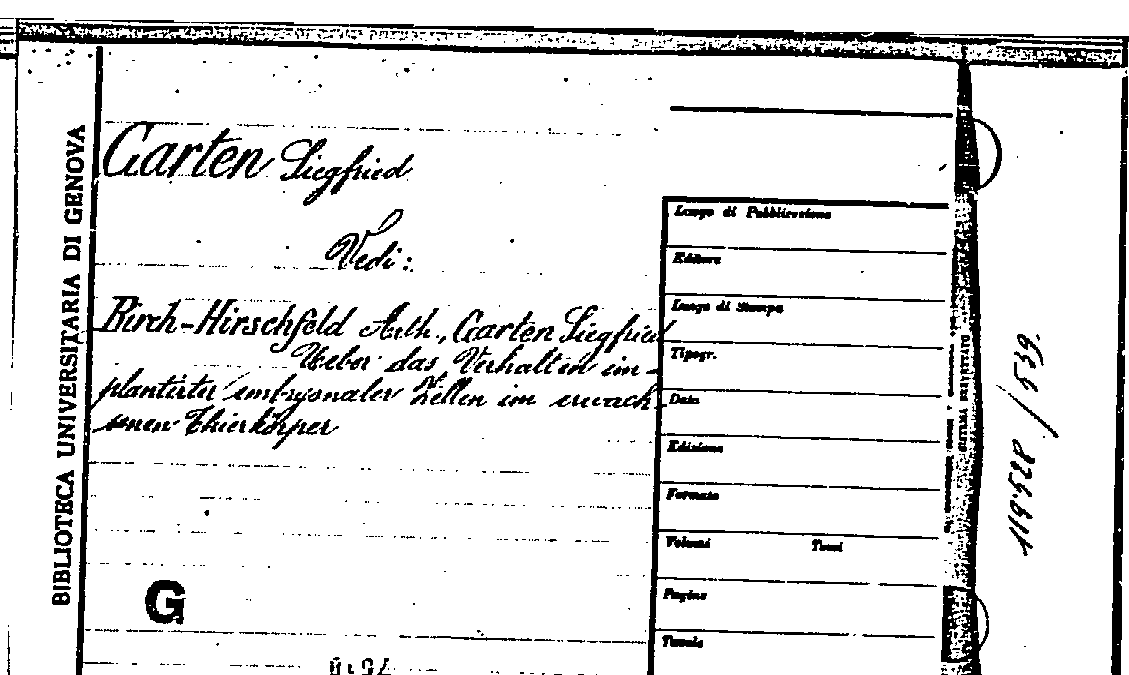 BIBLIOTECA UNIVERSITARIA DI GENOVA
Garten Siegfried
Vedi:
Birch-Hirschfeld Arth., Garten Siegfried
Ueber das Verhalten im-
plantirter embryonaler Zellen im erwach-
senen Thierkörper
G
Luogo di Pubblicazione
Editore
Luogo di Stampa
Tipogr.
Data
Edizione
Formato
Volumi Tomi
Pagine
Tavole
119528/539.